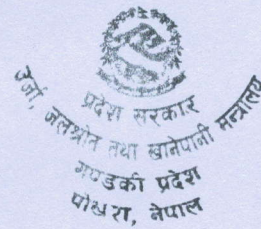 प्रदेश सरकार
उर्जा, जलश्रोत तथा खानेपानी मन्त्रालय
गण्डकी प्रदेश
पोखरा, नेपाल